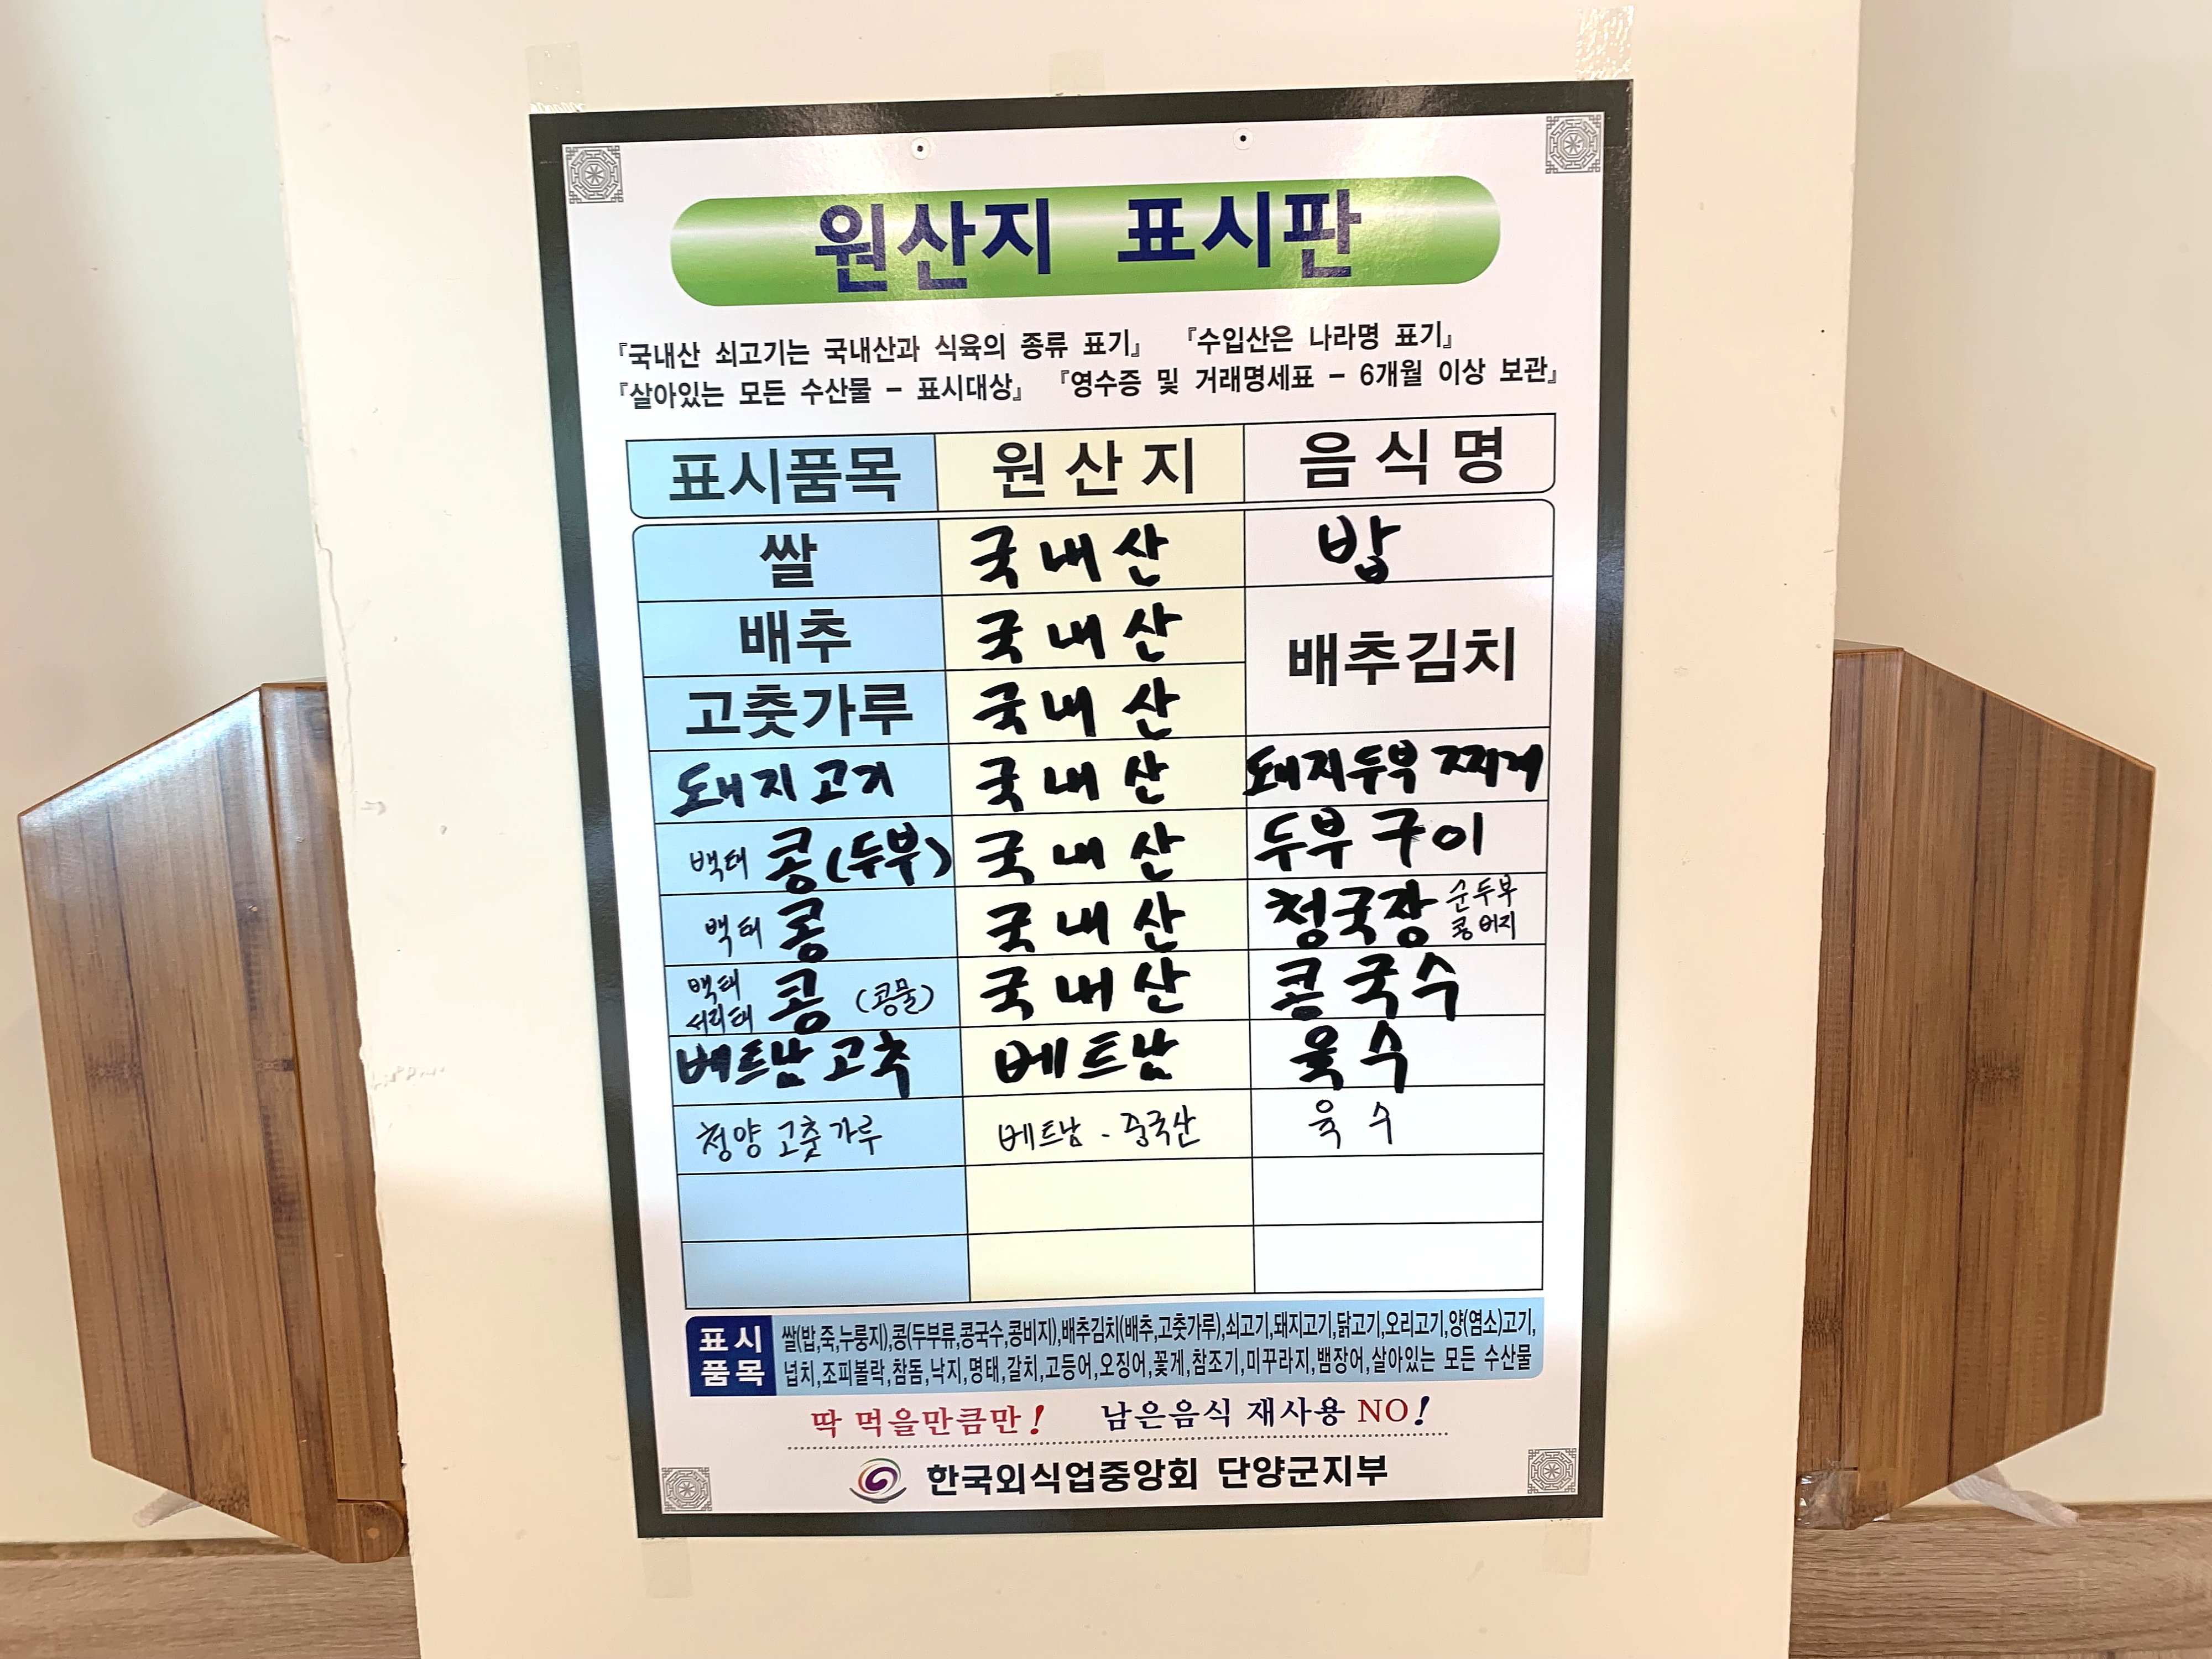 원산지 표시판
『국내산 쇠고기는 국내산과 식육의 종류 표기』 『수입산은 나라명 표기』
『살아있는 모든 수산물 - 표시대상』 『영수증 및 거래명세표 - 6개월 이상 보관』
표시품목 원산지 음식명
쌀 국내산 밥
배추 국내산 배추김치
고춧가루 국내산
돼지고기 국내산 돼지두부 찌게
백태 콩(두부) 국내산 두부구이
백태 콩 국내산 청국장 순두부 콩비지
백태 서리태 콩 (콩물) 국내산 콩국수
베트남고추 베트남 육수
청양 고춧가루 베트남 - 중국산 육수
표시품목 쌀(밥,죽,누룽지),콩(두부류,콩국수,콩비지),배추김치(배추,고춧가루),쇠고기,돼지고기,닭고기,오리고기,양(염소)고기,
넙치,조피볼락,참돔,낙지,명태,갈치,고등어,오징어,꽃게,참조기,미꾸라지,뱀장어,살아있는 모든 수산물
딱 먹을만큼만! 남은음식 재사용 NO!
한국외식업중앙회 단양군지부